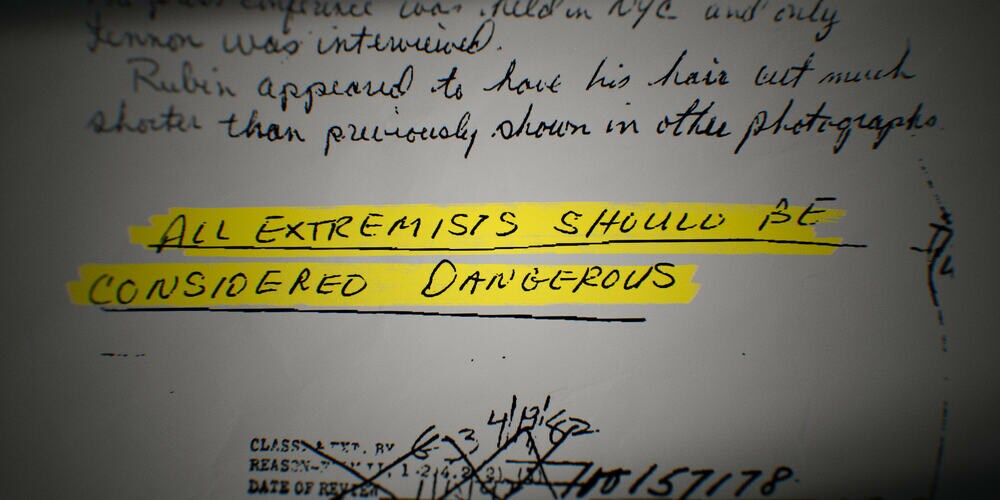 press conference was held in NYC and only
Lennon was interviewed.
Rubin appeared to have his hair cut much
shorter than previously shown in other photographs
ALL EXTREMISTS SHOULD BE
CONSIDERED DANGEROUS
CLASS. & EXT. BY
REASON-
DATE OF REVIEW